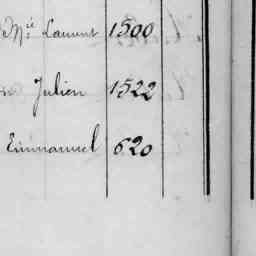 Laurent 1500
Julien 1522
Emmanuel 620